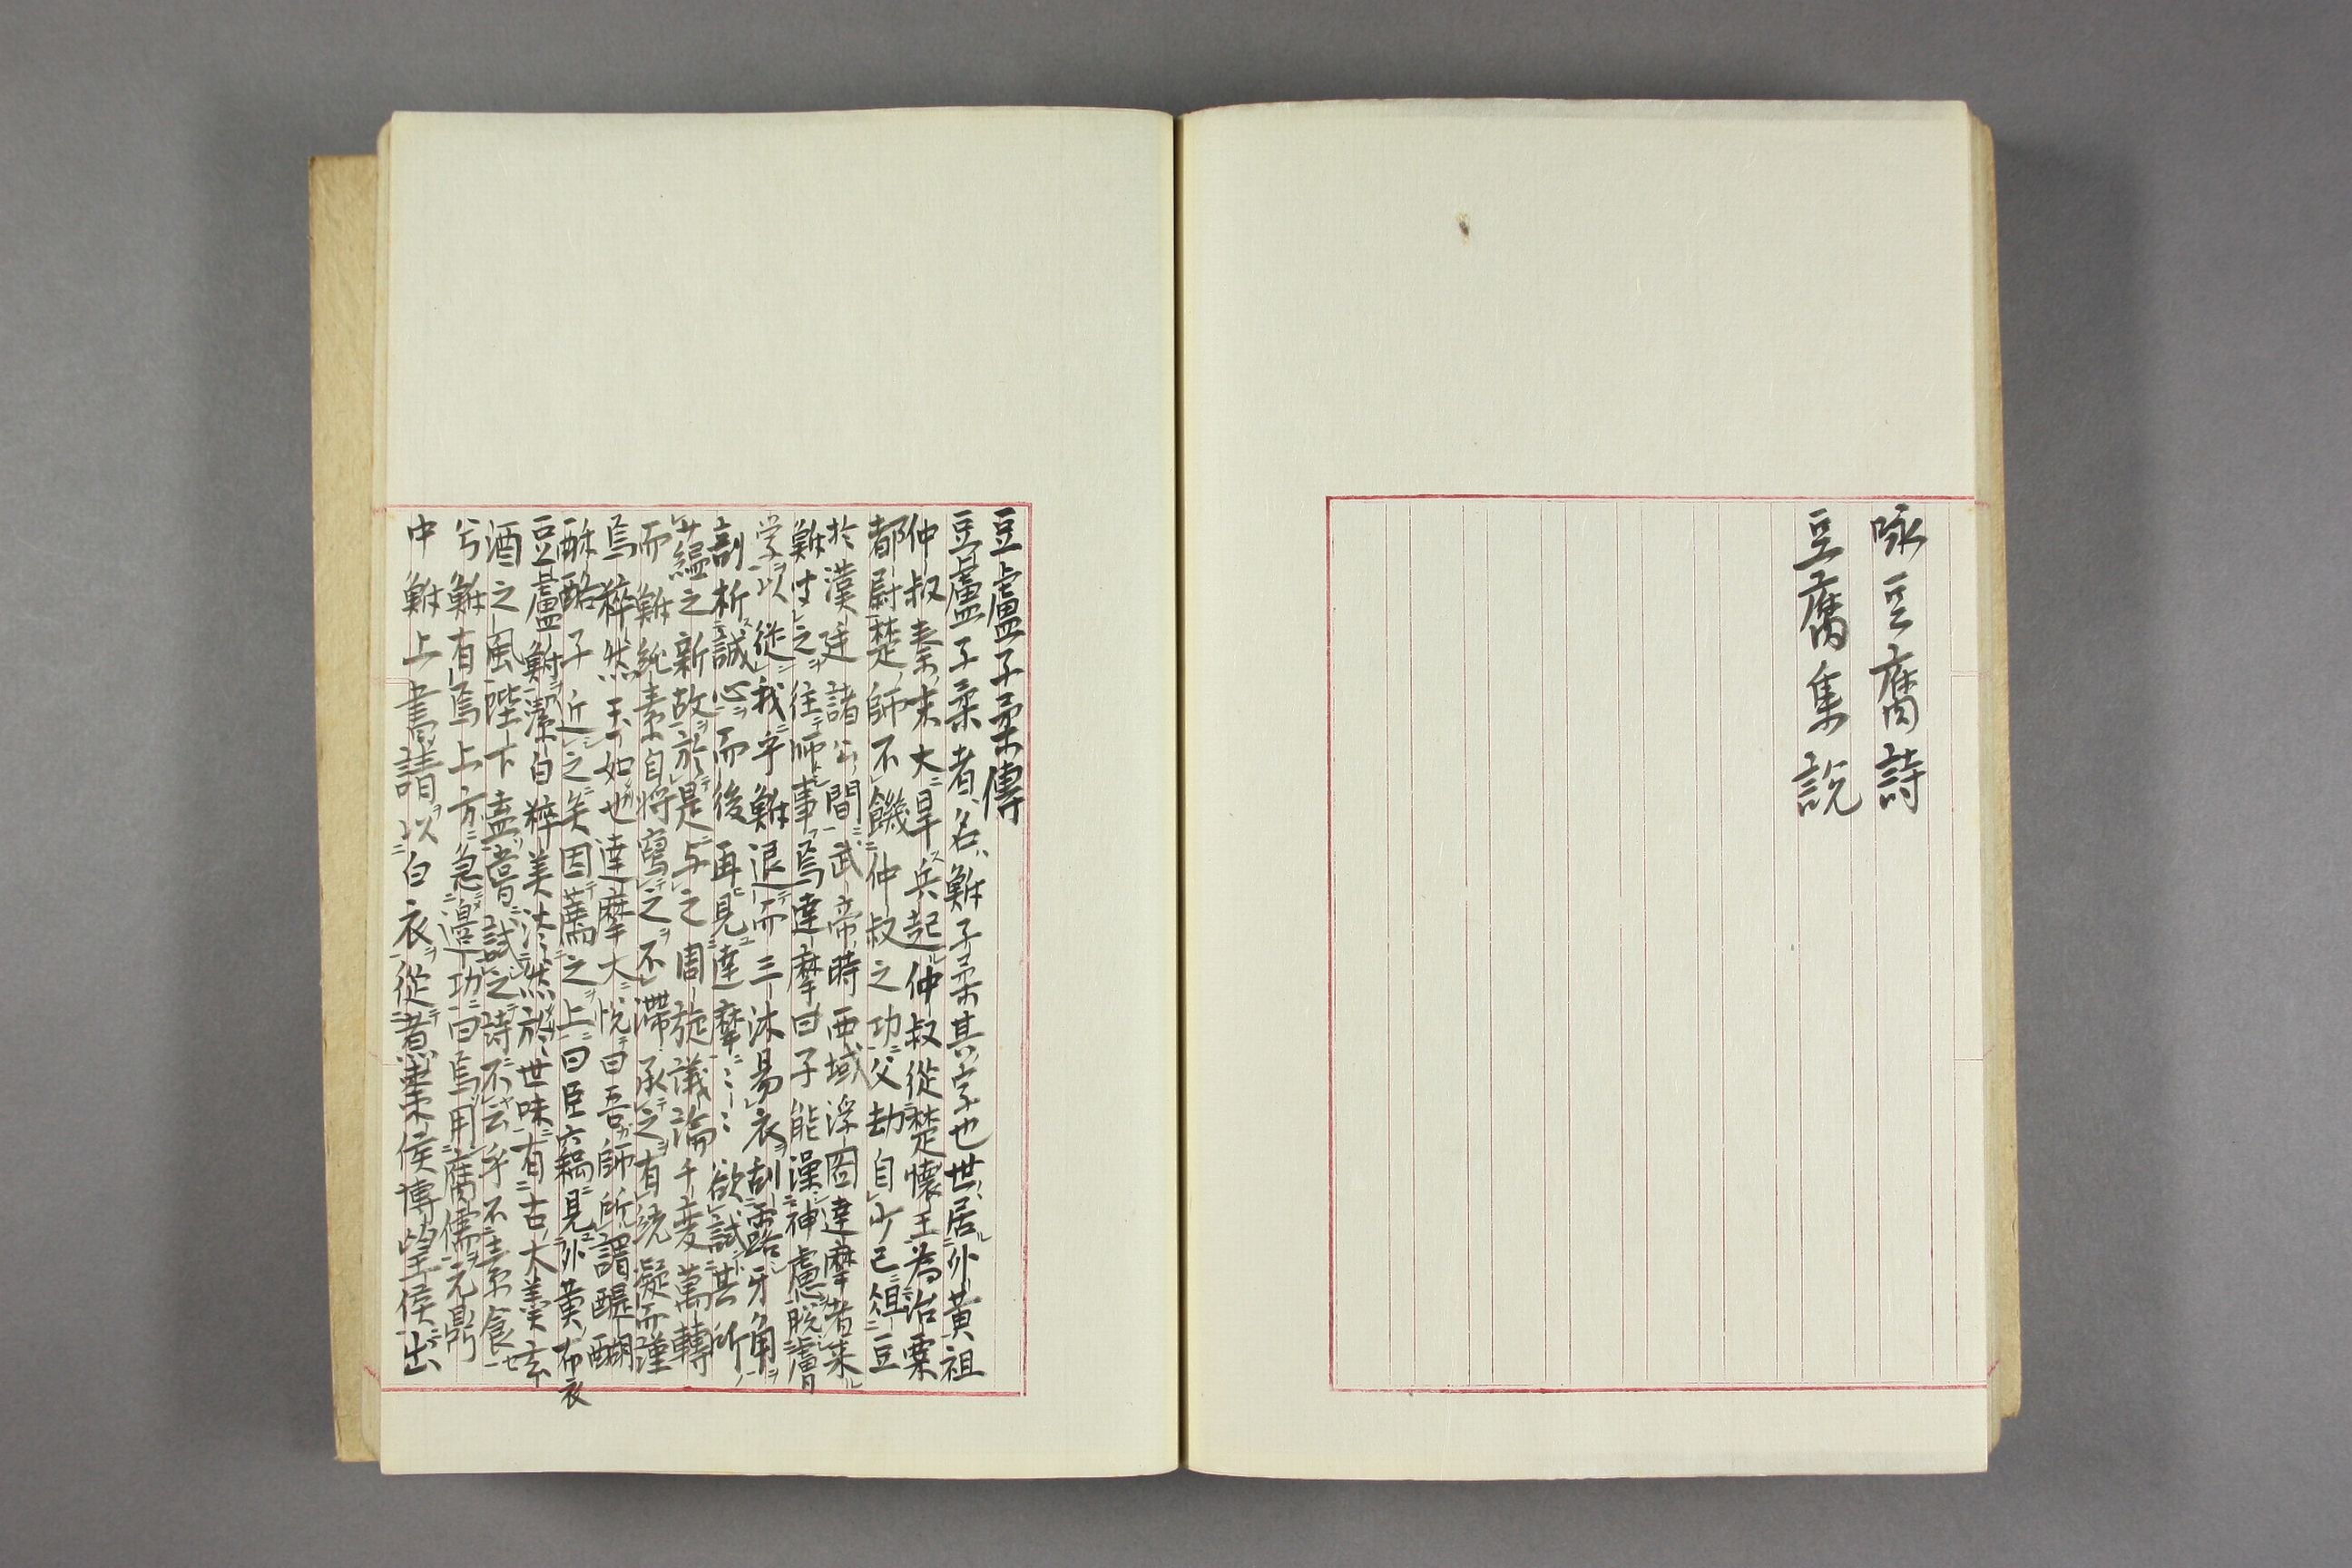 咏豆腐詩
豆腐集説
豆盧子柔傳
豆盧子柔者名鮒子柔其字也世居外黄祖
仲叔秦末大旱兵起仲叔從楚懐王為治粟
都尉楚師不饑仲叔之功父劫自少已俎豆
於漢廷諸公間武帝時西域浮圖達摩者来
鮒生之往師事焉達摩曰子能澡神慮脱膚
学以從我乎鮒退而三沐易衣刮露牙角
剖析誠心而後再見達摩ミミ欲試其所
藴之新故於是与之周旋議論千変萬轉
而鮒純素自将寫之不滞承之有統凝而謹
焉粹然玉如也達摩大悦曰吾師所謂醍醐
酥酪子近之矣因薦之上曰臣竊見外黄布衣
豆盧鮒潔白粹美淡然於世味有古大羹玄
酒之風陛下盍嘗試之詩不云乎不素食
兮鮒有焉上方急邊功曰焉用腐儒元鼎
中鮒上書請以白衣從煮棗侯博望侯出